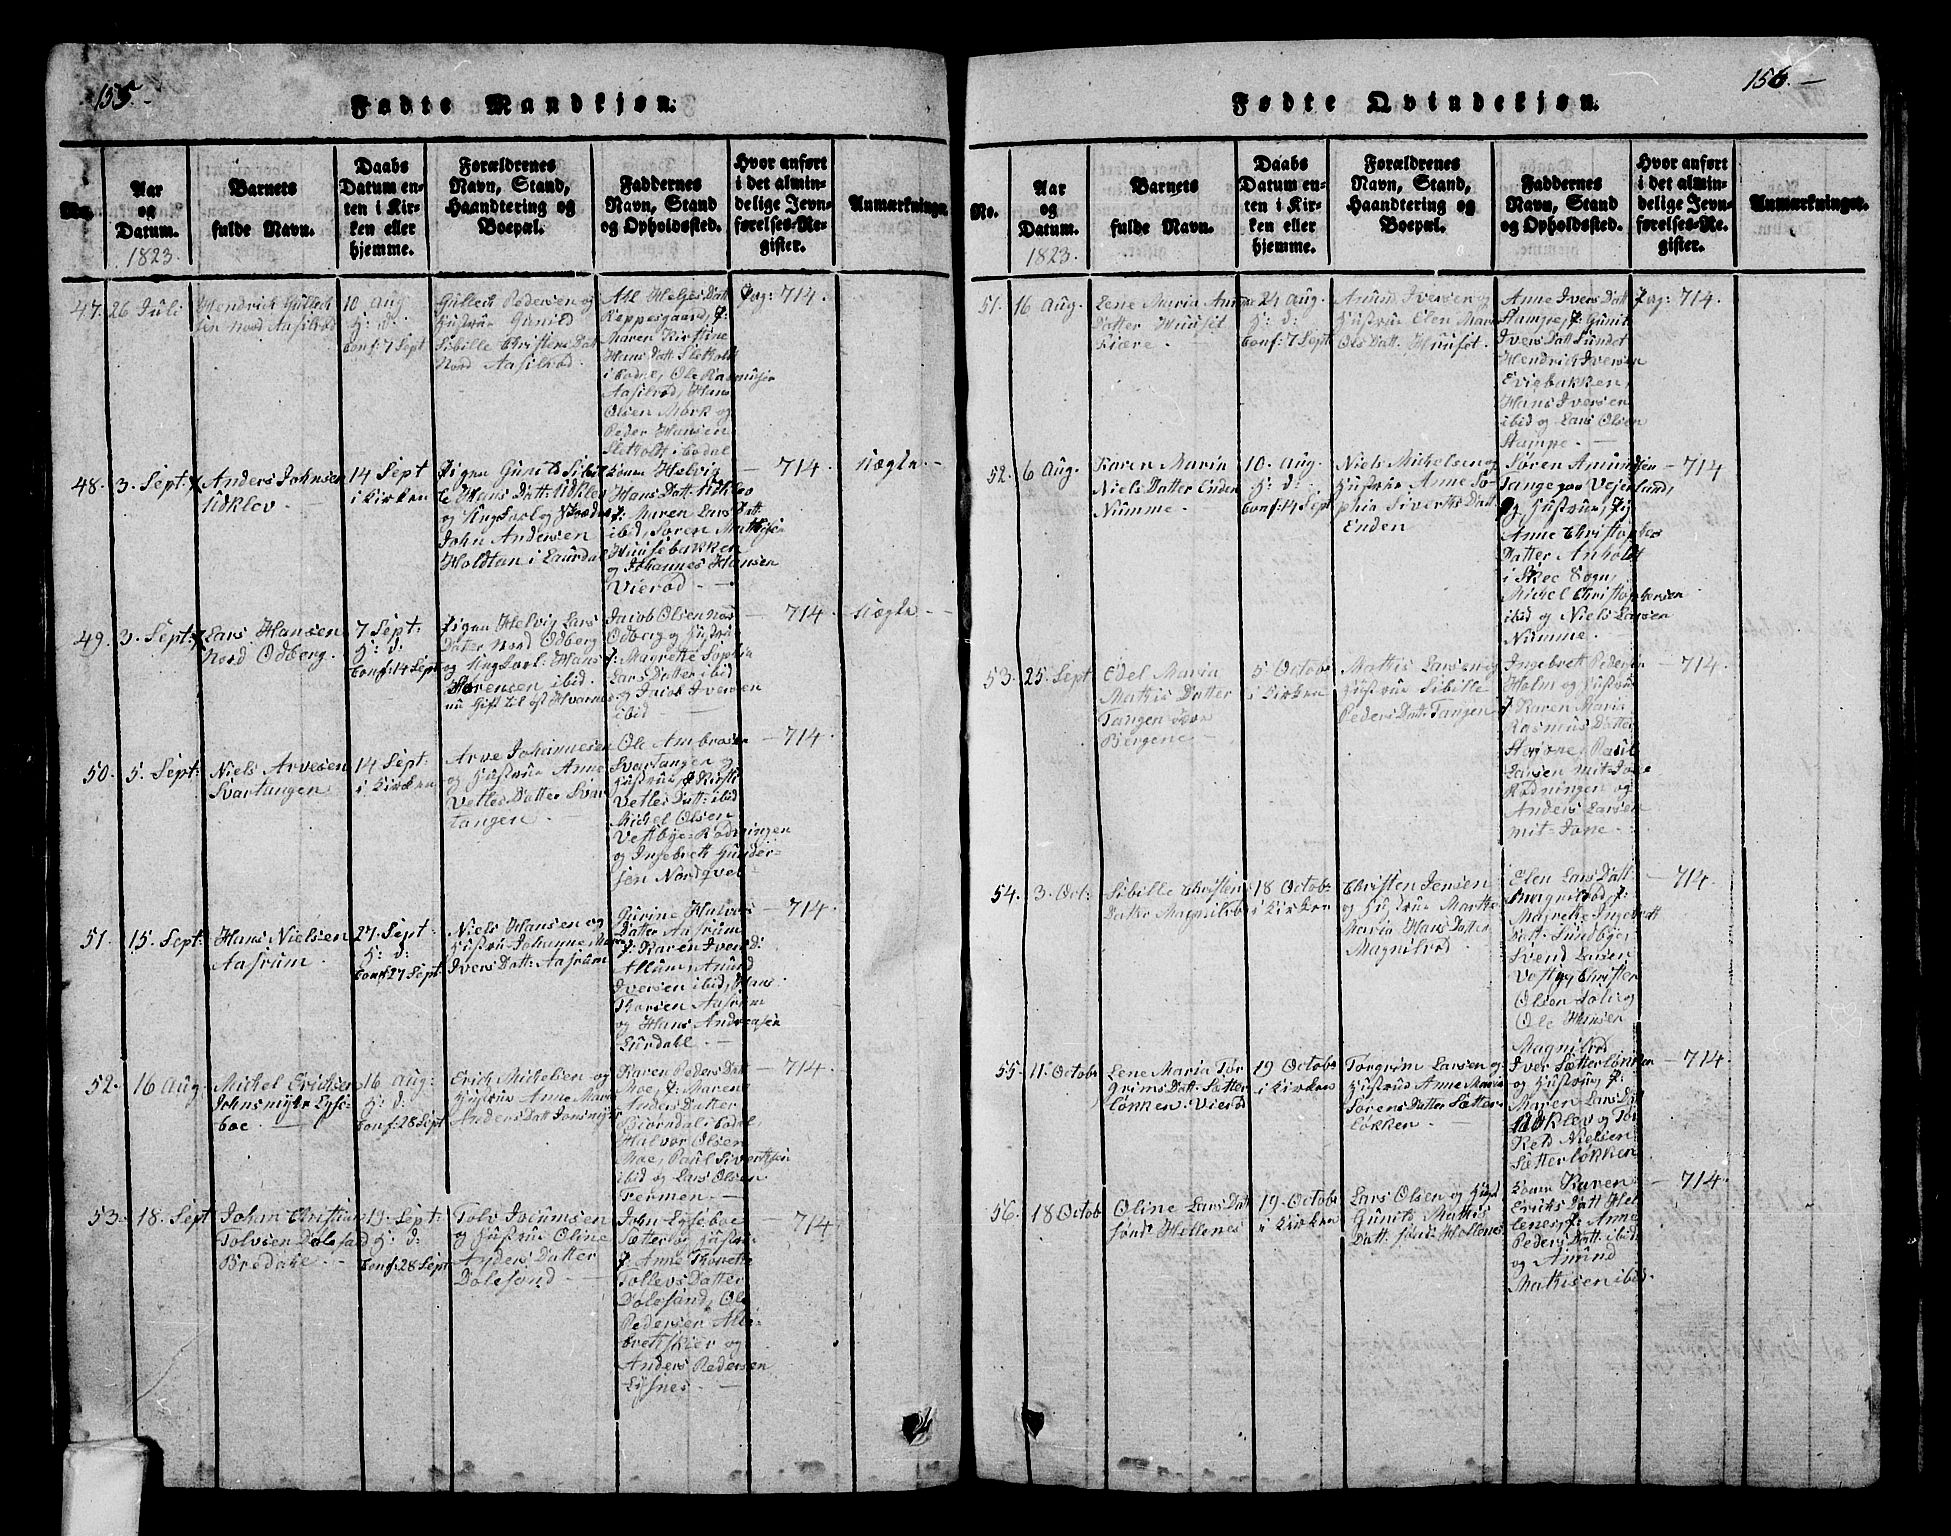 155.-
Fødte Mandkjøn.
No.
Aar
og
Datum.
1823
Barnets
fulde Navn.
Daabs
Datum en-
ten i Kir-
ken eller
hjemme.
Forældrenes
Navn, Stand,
Haandtering og
Boepæl.
Faddernes
Navn, Stand
og Opholdssted.
Hvor anført
i det almin-
delige Jevn-
førelses-Re-
gister.
Anmærkninger.
47. 26 Juli
Hendrich Gullech
sen Nord Aasilrod
10 Aug
H: d:
Conf: 7 Sept
Gullech Pedersen og
Hustrue Gunild
Sibille Christens Datt
Nord Aasilrod.
Maren Kirstine
Hans Datt: Sletholt
ibodne, Ole Rasmusen
Aasilrod, Hans
Olsen Mørk og
Peder Hansen
Sletholt ibodn
Pag: 714.
48. 3. Sept:
Anders Johnsen
Udklev.
14 Sept
i Kirken
Hans Datt: Udklev
og Ungkarl og
John Andersen
Holdtan i Laurdal
Hans Datt: Udklev
J: Maren Lars Datt:
ibid, Soren Mathisen
Huusebakken
og Johannes Hansen
Vierod. -
- 714.
Uægte -
49. 3. Sept:
Lars Hansen
Nord Odberg.
7 Sept:
H: d:
Conf: 14 Sept
Pigen Helvig Lars
Dater Nord Odberg
og Ungkarl: Hans
Sørensen ibid.
nu Gift til Øst Hvarnes
Jacob Olsen Nord
Odberg og Hustrue
J: Magrette Sophia
Lars Datter ibid
og Jacob Iversen
ibid -
- 714
Uægte -
50. 5. Sept:
Niels Arvesen
Svartangen
14 Sept:
i Kirken
Arve Johannesen
og Hustrue Anne
Vetles Datter Svar
tangen. -
Ole Ambrosen
Svartangen og
Hustrue J: Kirsti
Vetles Datt: ibid
Michel Olsen
Vestbye: Rodningen
og Ingebrett Gunder-
sen Nordqvel
- 714.
51. 15. Sept:
Hans Nielsen
Aasrum.
27. Sept
H: d:
Conf: 27 Sept.
Niels Hansen og
Hustrue Johanne Marie
Ivers Datt: Aasrum
Gurine Halvors
Datter Aasrum
J: Karen Ivers D:
Allum Amund
Iversen ibid, Hans
Thorsen Aasrum
og Hans Andreasen
Lurdahl. -
- 714.
52. 16 Aug.
Michel Erichsen
Johnsmyhr Lyse-
boe. -
16 Aug:
H: d:
Conf: 28 Sept
Erich Michelsen og
Hustrue Anne Marie
Anders Datt Jonsmyhr
Karen Peders Datt
Moe, J: Maren
Anders Datter
Biorndal ibodel,
Halvor Olsen
Moe, Paul Sivertsen
ibid og Lars Olsen
Fermen. -
- 714.
53. 18. Sept
Johan Christian
Tolvsen Dolesand
Bredahl. -
19. Sept:
H: d:
Conf: 28 Sept
og Hustrue Oline
Anders Datter
Dolesand -
John Lyseboe
J: Anne Thorette
Tollevs Datter
Dolesand, Ole
Pedersen Alle-
og
Anders Pedersen
Lysnes. -
714
156.-
Fødte Qvindekjøn.
No.
Aar
og
Datum.
1823.
Barnets
fulde Navn.
Daabs
Datum en-
ten i Kir-
ken eller
hjemme.
Forældrenes
Navn, Stand,
Haandtering og
Boepæl.
Faddernes
Navn, Stand
og Opholdssted.
Hvor anført
i det almin-
delige Jevn-
førelses-Re-
gister.
Anmærkninger.
51. 16 Aug.
Lene Maria Amund
Datter Huuset
Kiære. -
24 Aug.
H: d:
Conf: 7 Sept
Amund Iversen og
Hustrue Elen Marie
Ols Datt. Huuset.
Anne Ivers Datt
Stampe, J: Gunil
Ivers Datt Sundet
Hendrich Iversen
Evigbakken,
Hans Iversen
ibid og Lars Olsen
Stampe. -
Pag: 714.
52. 6 Aug.
Karen Maria
Niels Datter Enden
Numme. -
10 Aug.
H: d:
Conf: 14 Sept
Niels Michelsen og
Hustrue Anne So-
phia Siverts Datt
Enden
Søren Amundsen
Tange paa Vejerland,
og Hustrue, Pig
Anne Christophers
Datter Anholt
i Skee Sogn,
Michel Christophersen
ibid og Niels Larsen
Numme. -
- 714
53. 25. Sept
Edel Maria
Mathis Datter
Tangen
Bergene -
5 Octob:
i Kirken
Mathis Larsen og
Hustrue Sibille
Peders Datt: Tangen
Ingebrett Pedersen
Holm og Hustrue
J Karen Maria
Rasmus Datter
Larsen mit-Jone
Rodningen og
Anders Larsen
mit-Jone.
- 714.
54. 3. Oct:
Sibille Christen
Datter Magnilrod
18 Octob:
i Kirken
Christen Jensen
og Hustrue Marthe
Maria Hans Datter
Magnilrod
Elen Lars Datt
Magnilrod, J:
Magrette Ingebrett
Datt: Sundbye
Svend Larsen
Vestby, Christen
Olsen Solie og
Ole Hansen
Magnilrod
- 714.
55. 11. Octob:
Lene Maria Tor
grims Datt: Sætter
løkken: Vierød
19 Octob:
i Kirken
Torgrim Larsen og
Hustrue Anne Maria
Sørens Datter Sætter-
løkken. -
Iver Sætterløkken
og Hustrue, J:
Maren Lars Datt
Udklev og Tor
Keld Nielsen
Sætterløkken
- 714
56. 18 Octob
Oline Lars Datt
Sønd: Hellenes
19. Octob:
i Kirken
Lars Olsen og Hust
Gunild Mathis
Datt. Sønd: Hellenes
Konen Karen
Erichs Datt Hel
lenes, J: Anne
Peders Datt: ibid
og Amund
Mathisen ibid.
- 714.